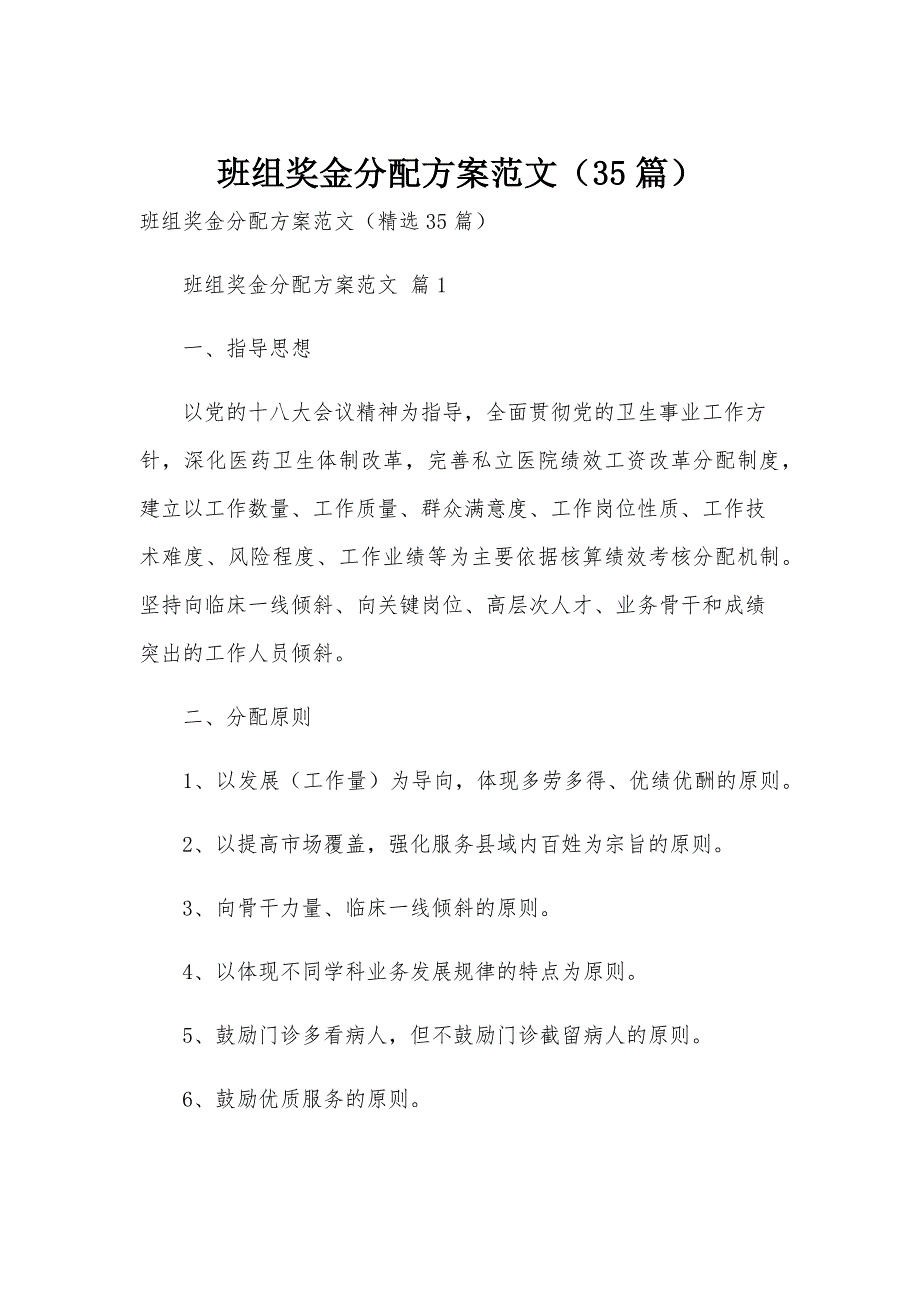 班组奖金分配方案范文（35 篇）
班组奖金分配方案范文（精选 35 篇）
班组奖金分配方案范文 篇 1
一、指导思想
以党的十八大会议精神为指导，全面贯彻党的卫生事业工作方
针，深化医药卫生体制改革，完善私立医院绩效工资改革分配制度，
建立以工作数量、工作质量、群众满意度、工作岗位性质、工作技
术难度、风险程度、工作业绩等为主要依据核算绩效考核分配机制。
坚持向临床一线倾斜、向关键岗位、高层次人才、业务骨干和成绩
突出的工作人员倾斜。
二、分配原则
1、以发展（工作量）为导向，体现多劳多得、优绩优酬的原则。
2、以提高市场覆盖，强化服务县域内百姓为宗旨的原则。
3、向骨干力量、临床一线倾斜的原则。
4、以体现不同学科业务发展规律的特点为原则。
5、鼓励门诊多看病人，但不鼓励门诊截留病人的原则。
6、鼓励优质服务的原则。